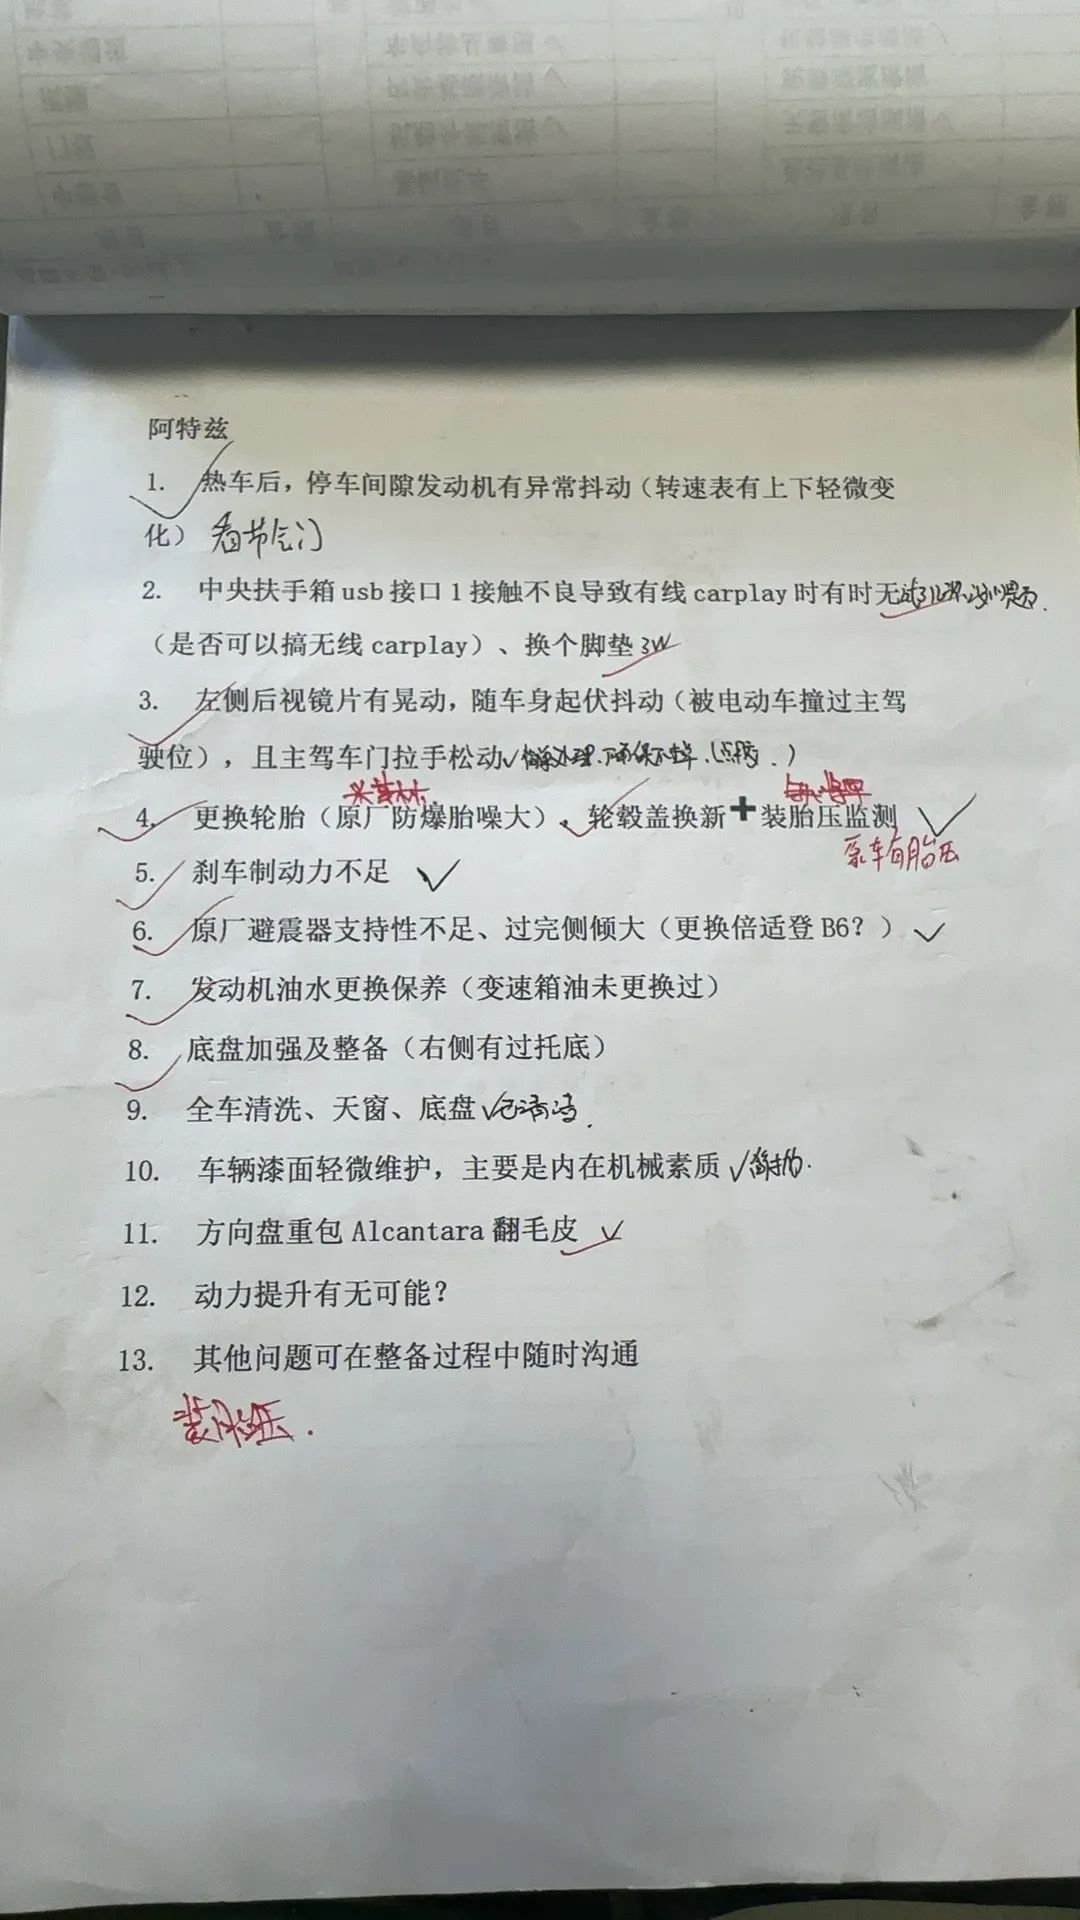 阿特兹
1. 热车后，停车间隙发动机有异常抖动（转速表有上下轻微变
化） 看节气门
2. 中央扶手箱 usb 接口 1 接触不良导致有线 carplay 时有时无
（是否可以搞无线 carplay）、换个脚垫 3W
3. 左侧后视镜片有晃动，随车身起伏抖动（被电动车撞过主驾
驶位），且主驾车门拉手松动
4. 更换轮胎（原厂防爆胎噪大）、轮毂盖换新+装胎压监测
原车有胎压
5. 刹车制动力不足
6. 原厂避震器支持性不足、过完侧倾大（更换倍适登 B6？）
7. 发动机油水更换保养（变速箱油未更换过）
8. 底盘加强及整备（右侧有过托底）
9. 全车清洗、天窗、底盘
10. 车辆漆面轻微维护，主要是内在机械素质
11. 方向盘重包 Alcantara 翻毛皮
12. 动力提升有无可能？
13. 其他问题可在整备过程中随时沟通
装胎压.